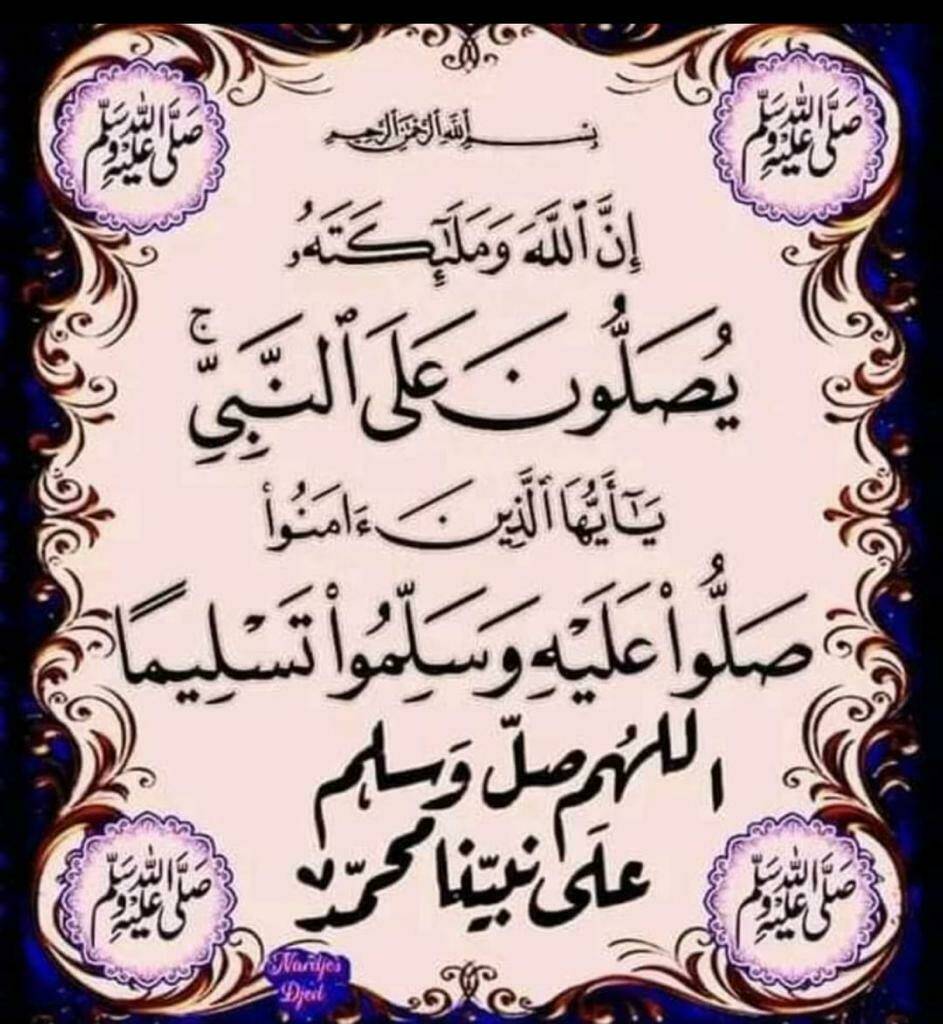 صَلَّى اللهُ عَلَيْهِ وَسَلَّمَ
صَلَّى اللهُ عَلَيْهِ وَسَلَّمَ
بِسْمِ ٱللَّهِ ٱلرَّحْمَٰنِ ٱلرَّحِيمِ
إِنَّ ٱللَّهَ وَمَلَٰٓئِكَتَهُۥ
يُصَلُّونَ عَلَى ٱلنَّبِيِّ ۚ
يَٰٓأَيُّهَا ٱلَّذِينَ ءَامَنُوا۟
صَلُّوا۟ عَلَيْهِ وَسَلِّمُوا۟ تَسْلِيمًا
اللهُم صلّ وَسلم
علَى نبيّنا محمّد
صَلَّى اللهُ عَلَيْهِ وَسَلَّمَ
صَلَّى اللهُ عَلَيْهِ وَسَلَّمَ
Nardjes
Djed